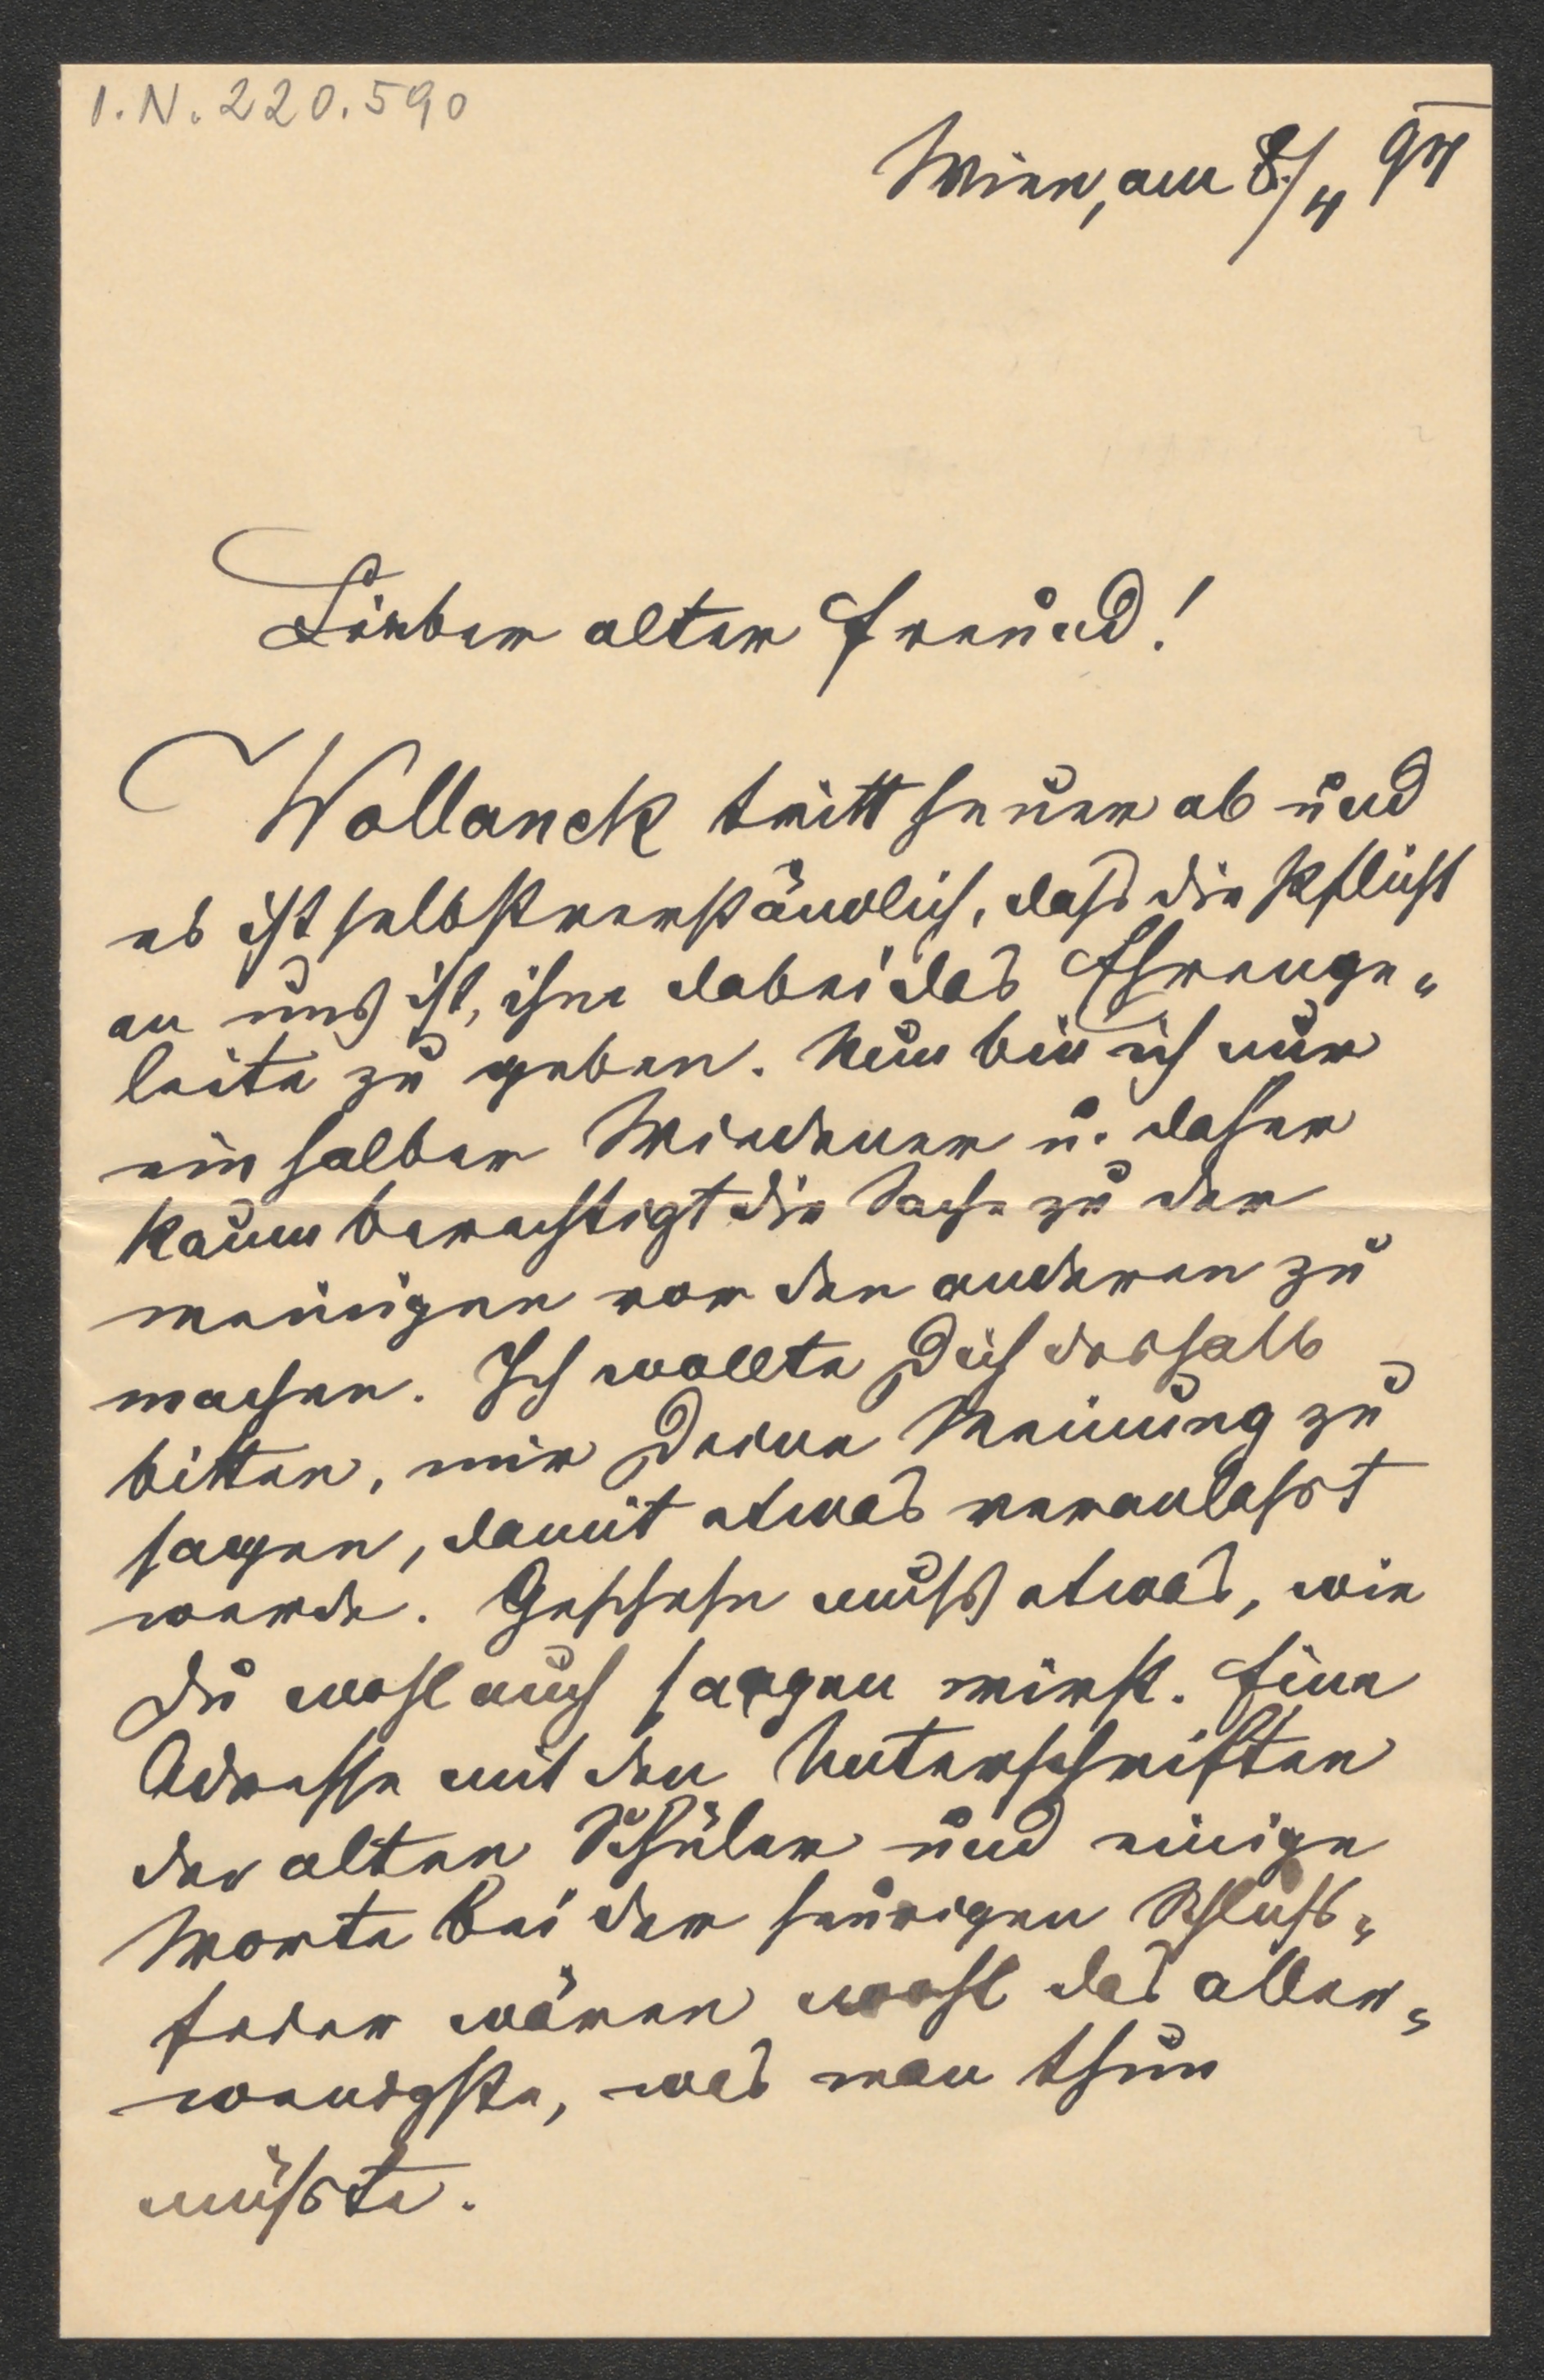 I.N. 220.590
Wien, am 8./4 94
Lieber alter Freund!
Wollanek tritt heuer ab und
es ist selbstverständlich, dass die Pflicht
an uns ist, ihm dabei das Ehrenge-
leite zu geben. Nun bin ich nur
ein halber Wiedener u. daher
kaum berechtigt die Sache zu der
meinigen vor den anderen zu
machen. Ich wollte Dich deshalb
bitten, mir Deine Meinung zu
sagen, damit etwas veranlasst
werde. Geschehen muss etwas, wie
Du wohl auch sagen wirst. Eine
Adresse mit den Unterschriften
der alten Schüler und einige
Worte bei der heurigen Schluss-
feier wären wohl das aller-
wenigste, was man thun
müsste.